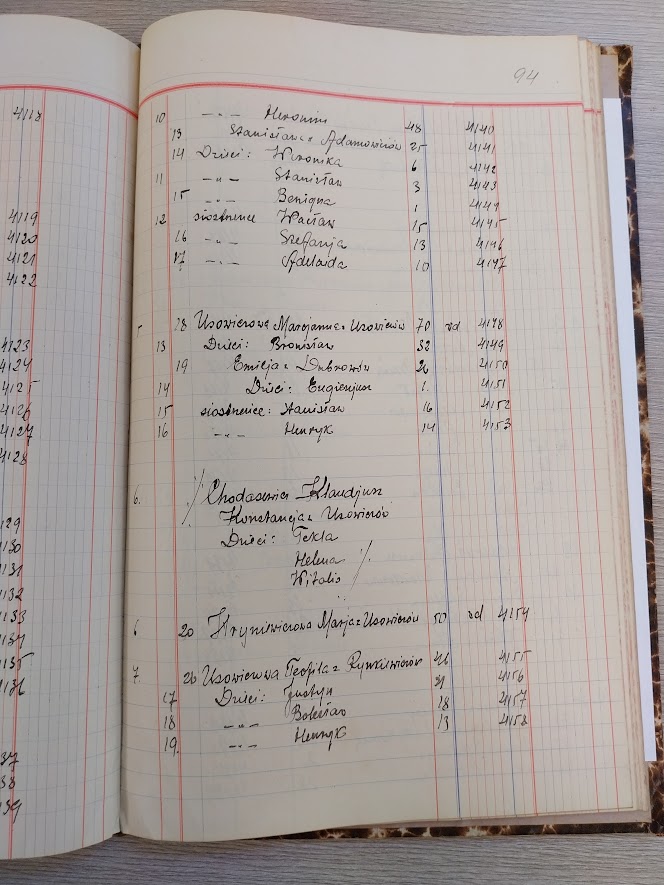 94
4118
10 -"- Hieronim 48 4140
13 Stanisława z Adamowiczów 25 4141
14 Dzieci: Weronika 6 4142
11 -"- Stanisław 3 4143
15 Benigna 1 4144
12 siostrzeńce Wacław 15 4145
16 -"- Stefanja 13 4146
17 -"- Adelaida 10 4147
4119
4120
4121
4122
5 18 Usowiczowa Marjanna z Usowiczów 70 wd 4148
13 Dzieci: Bronisław 32 4149
19 Emilja z Dubrowów 26 4150
14 Dzieci: Eugienjusz 1 4151
15 siostrzeńce: Stanisław 16 4152
16 -"- Henryk 14 4153
4123
4124
4125
4126
4127
4128
6. Chodasewicz Klaudjusz
Konstancja z Usowiczów
Dzieci: Tekla
Helena
Witalis
129
130
131
132
133
134
135
136
6 20 Hryniewiczowa Marja z Usowiczów 50 wd 4154
7. 26 Usowiczowa Teofila z Rynkiewiczów 46 4155
17 Dzieci: Justyn 21 4156
18 -"- Bolesław 18 4157
19. -"- Henryk 13 4158
37
38
39